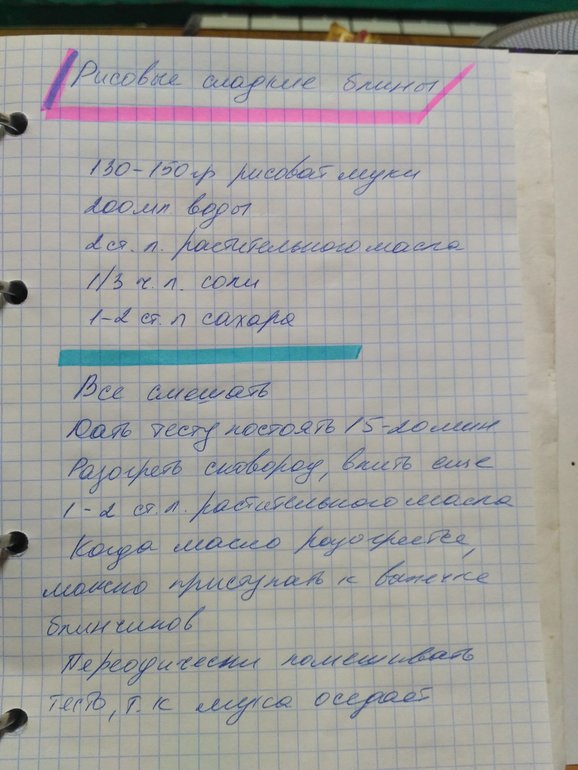 Рисовые сладкие блины
130-150гр рисовой муки
200мл. воды
2 ст. л. растительного масла
1/3 ч. л. соли
1-2 ст. л сахара
Все смешать
Дать тесту постоять 15-20 мин
Разогреть сковород, влить еще
1-2 ст. л. растительного масла
Когда масло разогреется,
можно приступать к выпечке
блинчиков
Переодически помешивать
тесто, т. к мука оседает